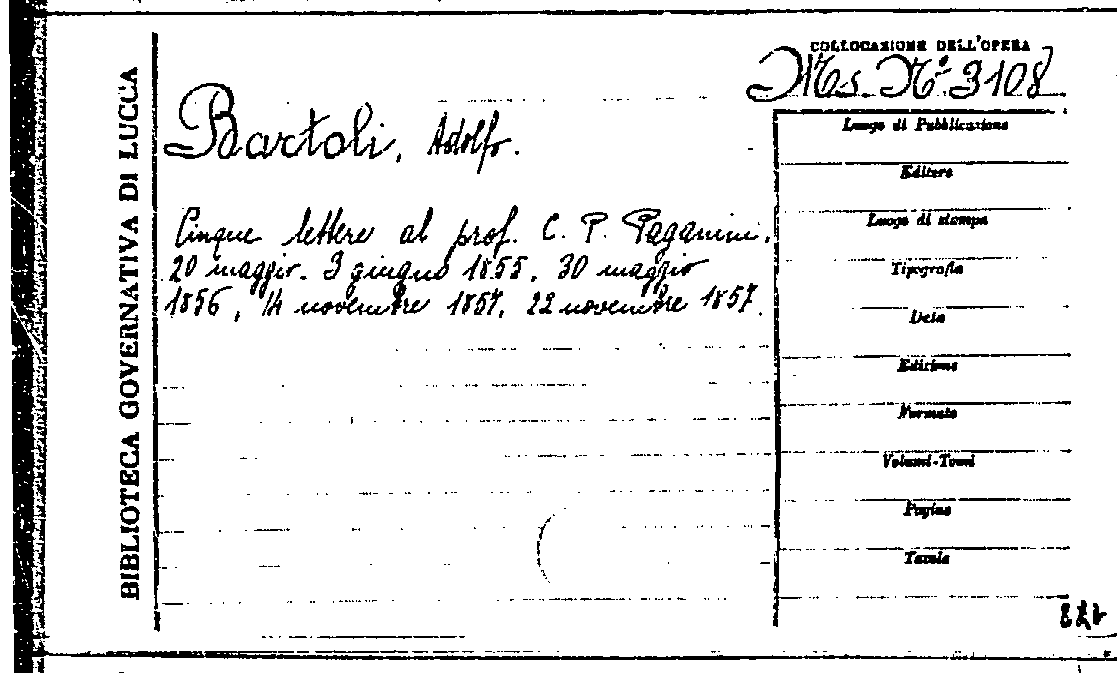 BIBLIOTECA GOVERNATIVA DI LUCCA
COLLOCAZIONE DELL'OPERA
Ms. N.º 3108
Bartoli, Adolfo.
Cinque lettere al prof. C. P. Paganini.
20 maggio. 3 giugno 1855. 30 maggio
1856, 14 novembre 1857. 22 novembre 1857.
Luogo di Pubblicazione
Editore
Luogo di stampa
Tipografia
Data
Edizione
Formato
Volumi-Tomi
Pagine
Tavole